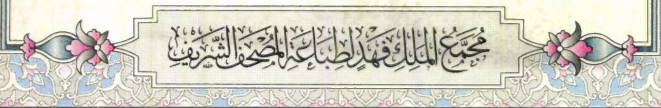 مُجَمَّعُ المَلِكِ فَهْدٍ لِطِبَاعَةِ المُصْحَفِ الشَّرِيفِ